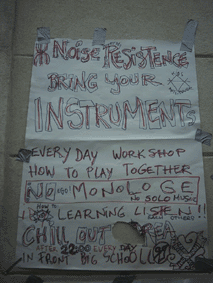 NOISE RESISTENCE
BRING YOUR
INSTRUMENTS
EVERYDAY WORKSHOP
HOW TO PLAY TOGETHER
NO MONOLOGE
NO SOLO MUSIC
HOW TO LEARNING LISTEN!!
EACH OTHERS
CHILL OUT AREA
AFTER 22:00 EVERY DAY
IN FRONT BIG SCHOOL